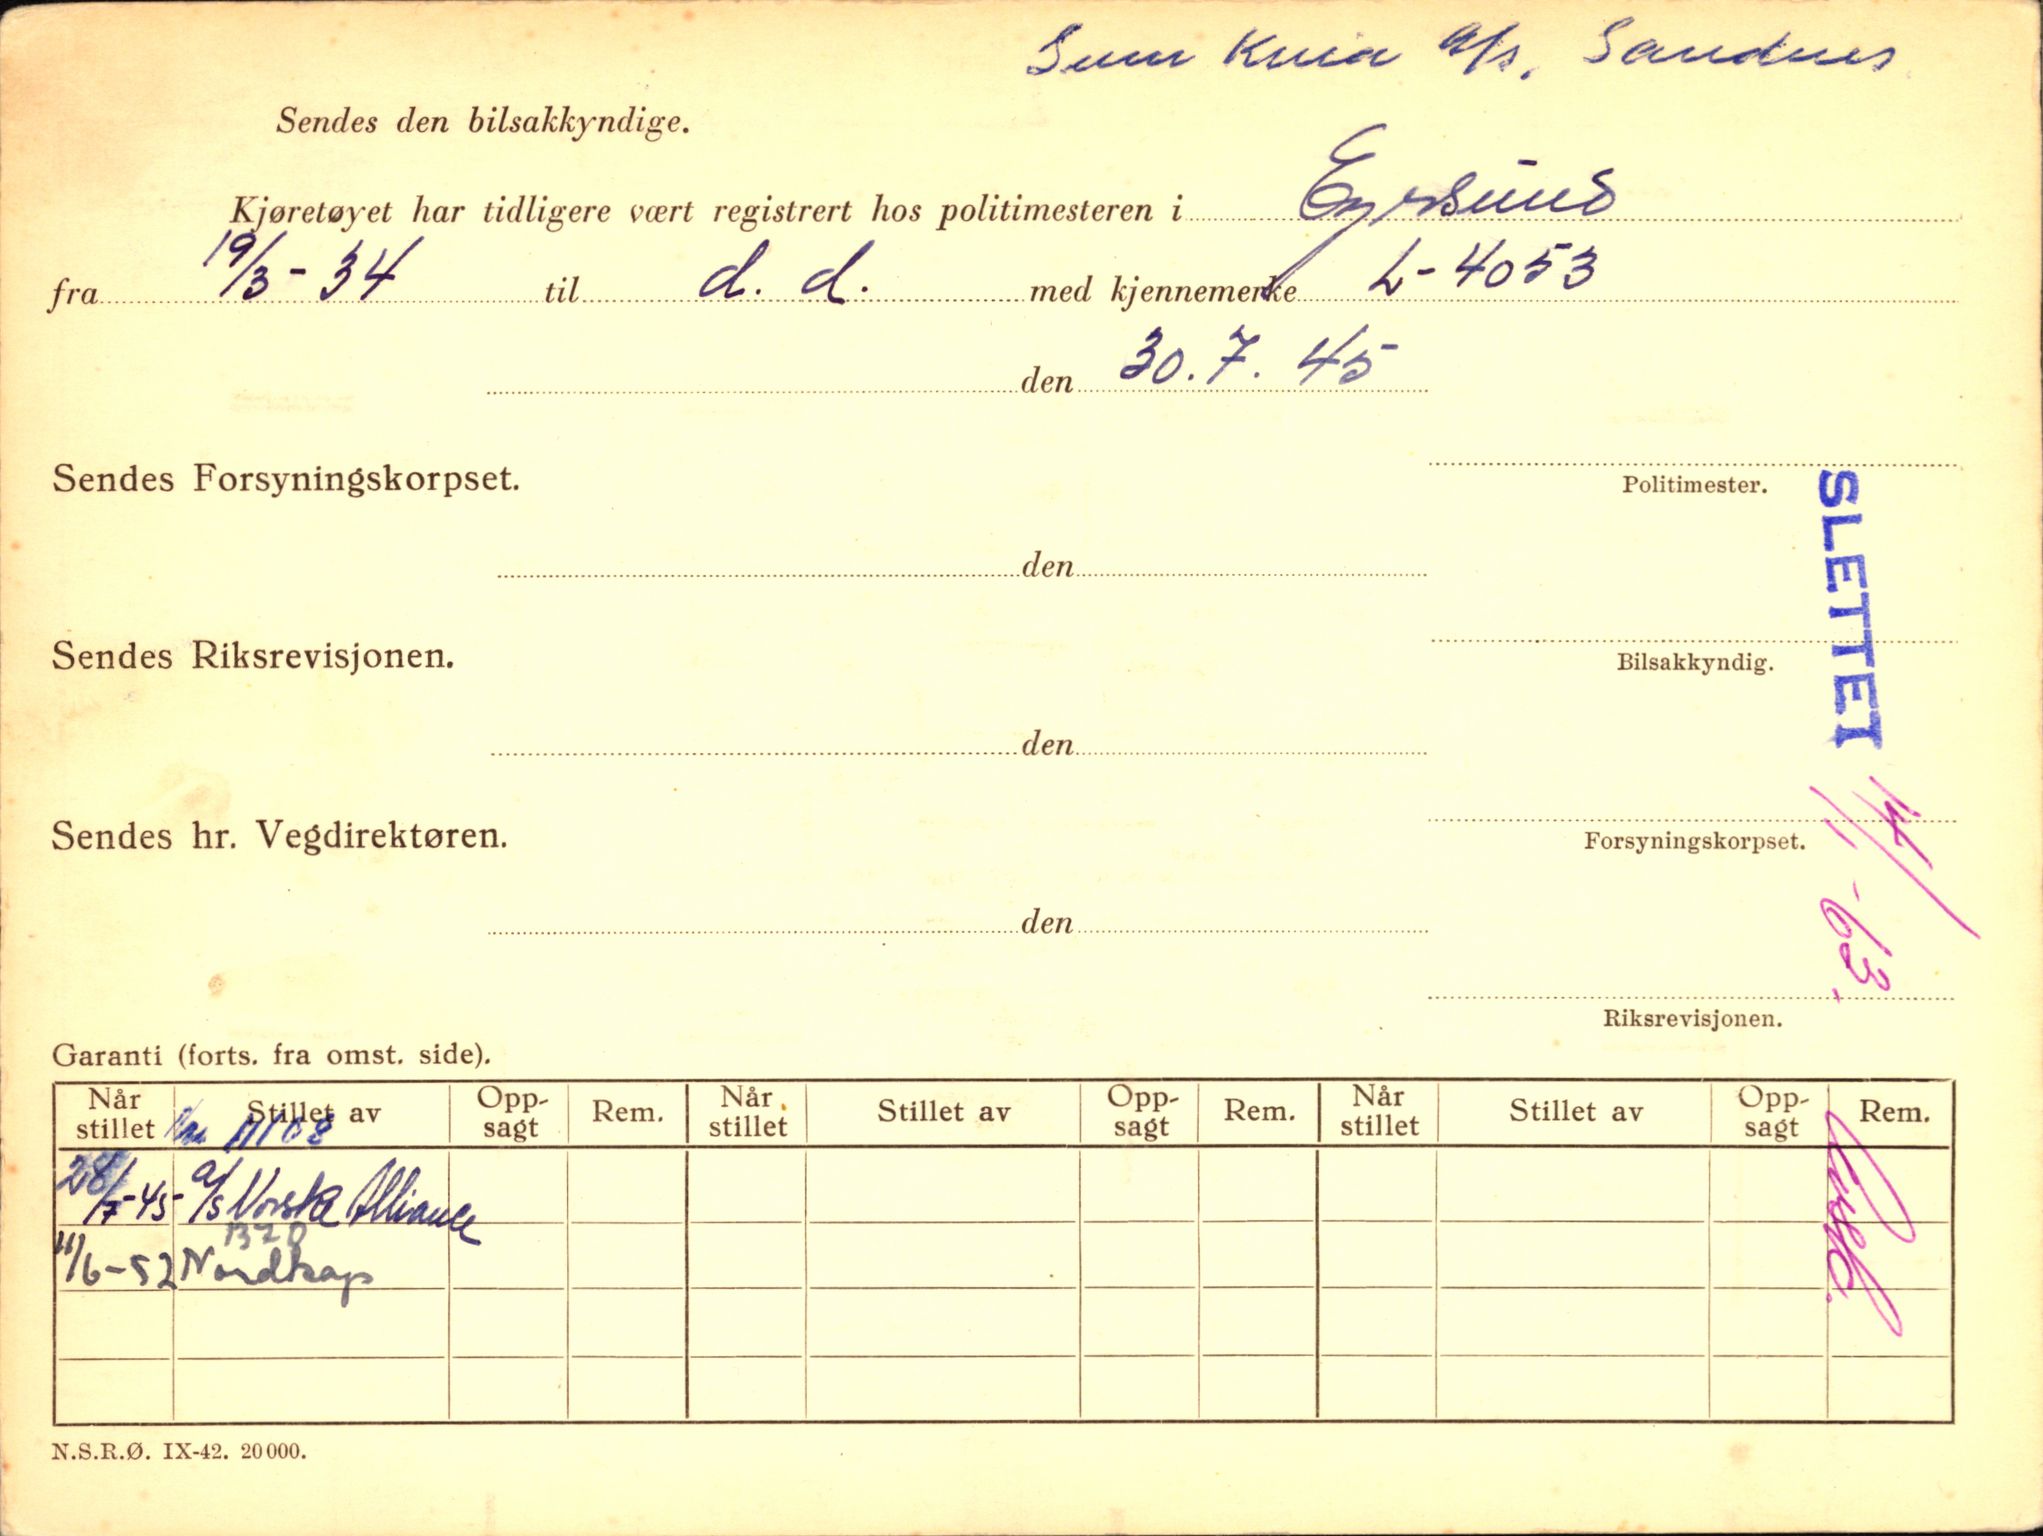 a/s. Sandnes
Sendes den bilsakkyndige.
Kjøretøyet har tidligere vært registrert hos politimesteren i Egersund
fra 19/3-34 til d. d. med kjennemerke L-4053
den 30.7.45
Sendes Forsyningskorpset.
Politimester.
den
SLETTET 14/1-63.
Sendes Riksrevisjonen.
Bilsakkyndig.
den
Sendes hr. Vegdirektøren.
Forsyningskorpset.
den
Riksrevisjonen.
Garanti (forts. fra omst. side).
Når stillet Stillet av Opp-sagt Rem. Når stillet Stillet av Opp-sagt Rem. Når stillet Stillet av Opp-sagt Rem.
28/7-45 a/s Norske Alliance
11/6-52 Nordkap
N.S.R.Ø. IX-42. 20 000.